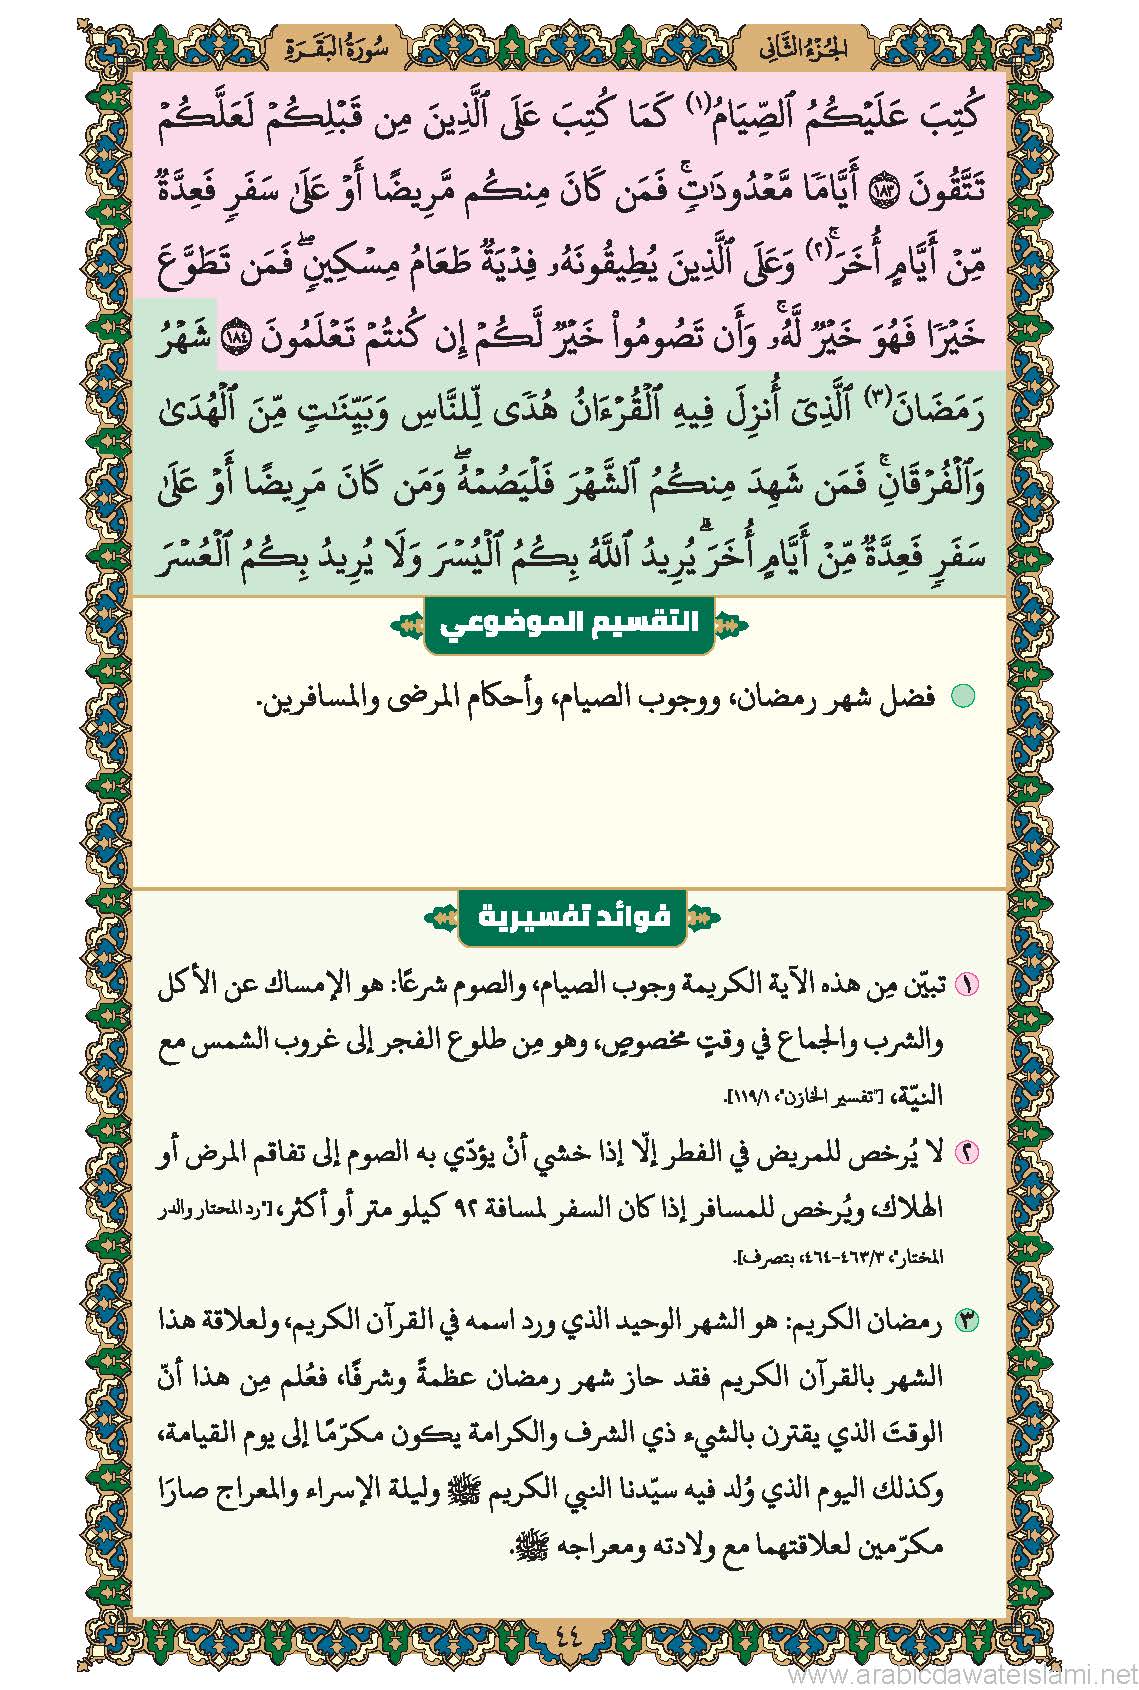 الجُزْءُ الثَّانِي
سُورَةُ البَقَرَةِ
كُتِبَ عَلَيْكُمُ ٱلصِّيَامُ(١) كَمَا كُتِبَ عَلَى ٱلَّذِينَ مِن قَبْلِكُمْ لَعَلَّكُمْ
تَتَّقُونَ ١٨٣ أَيَّامًا مَّعْدُودَٰتٍۚ فَمَن كَانَ مِنكُم مَّرِيضًا أَوْ عَلَىٰ سَفَرٍ فَعِدَّةٌ
مِّنْ أَيَّامٍ أُخَرَۚ(٢) وَعَلَى ٱلَّذِينَ يُطِيقُونَهُۥ فِدْيَةٌ طَعَامُ مِسْكِينٍۖ فَمَن تَطَوَّعَ
خَيْرًا فَهُوَ خَيْرٌ لَّهُۥۚ وَأَن تَصُومُوا۟ خَيْرٌ لَّكُمْ إِن كُنتُمْ تَعْلَمُونَ ١٨٤ شَهْرُ
رَمَضَانَ(٣) ٱلَّذِىٓ أُنزِلَ فِيهِ ٱلْقُرْءَانُ هُدًى لِّلنَّاسِ وَبَيِّنَٰتٍ مِّنَ ٱلْهُدَىٰ
وَٱلْفُرْقَانِۚ فَمَن شَهِدَ مِنكُمُ ٱلشَّهْرَ فَلْيَصُمْهُۖ وَمَن كَانَ مَرِيضًا أَوْ عَلَىٰ
سَفَرٍ فَعِدَّةٌ مِّنْ أَيَّامٍ أُخَرَۗ يُرِيدُ ٱللَّهُ بِكُمُ ٱلْيُسْرَ وَلَا يُرِيدُ بِكُمُ ٱلْعُسْرَ
التقسيم الموضوعي
فضل شهر رمضان، ووجوب الصيام، وأحكام المرضى والمسافرين.
فوائد تفسيرية
١ تبيّن مِن هذه الآية الكريمة وجوب الصيام، والصوم شرعًا: هو الإمساك عن الأكل
والشرب والجماع في وقتٍ مخصوصٍ، وهو مِن طلوع الفجر إلى غروب الشمس مع
النيّة، ["تفسير الخازن"، ١/١١٩].
٢ لا يُرخص للمريض في الفطر إلّا إذا خشي أنْ يؤدّي به الصوم إلى تفاقم المرض أو
الهلاك، ويُرخص للمسافر إذا كان السفر لمسافة ٩٢ كيلو متر أو أكثر، ["رد المحتار والدر
المختار"، ٣/٤٦٣-٤٦٤، بتصرف].
٣ رمضان الكريم: هو الشهر الوحيد الذي ورد اسمه في القرآن الكريم، ولعلاقة هذا
الشهر بالقرآن الكريم فقد حاز شهر رمضان عظمةً وشرفًا، فعُلم مِن هذا أنّ
الوقتَ الذي يقترن بالشيء ذي الشرف والكرامة يكون مكرّمًا إلى يوم القيامة،
وكذلك اليوم الذي وُلد فيه سيّدنا النبي الكريم ﷺ وليلة الإسراء والمعراج صارَا
مكرّمين لعلاقتهما مع ولادته ومعراجه ﷺ.
٤٤
www.arabicdawateislami.net